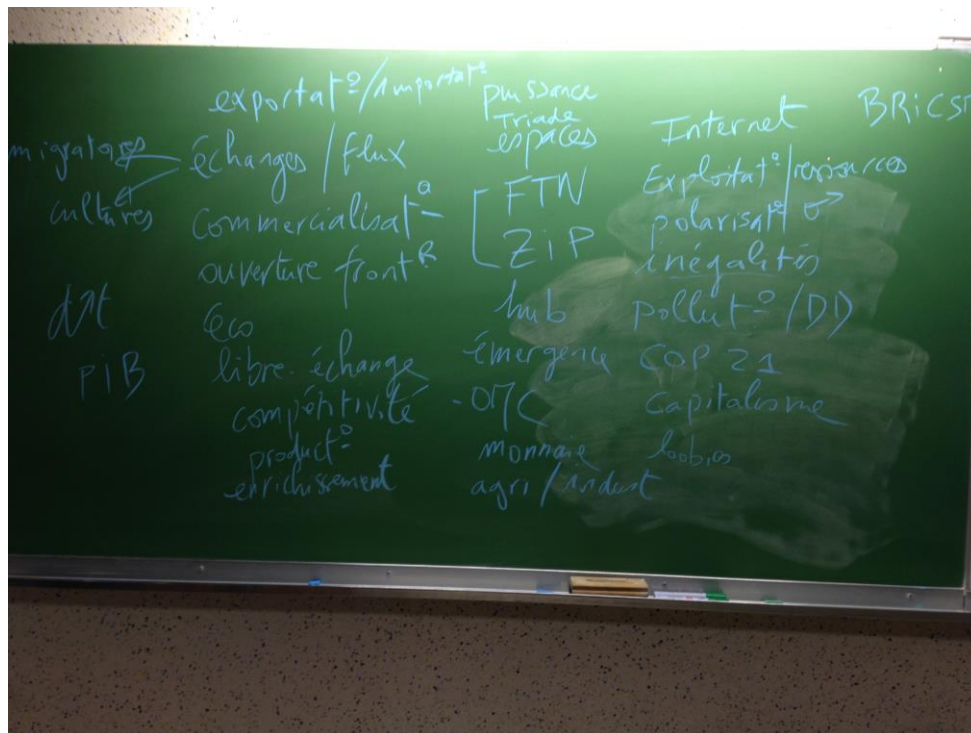 exportat°/importat°
échanges / flux
migratoires
et
cultures
commercialisat°
ouverture front R
éco
libre-échange
compétitivité
product°
enrichissement
PiB
puissance
Triade
espaces
FTN
ZiP
hub
émergence
- OMC
monnaie
agri/indust
Internet
Exploitat°/ressources
polarisat°
inégalités
pollut°/DD
COP 21
Capitalisme
BRiCS